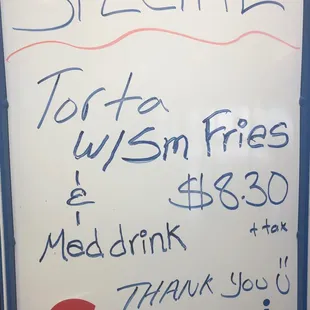 SPECIAL
Torta
w/Sm Fries
& $8.30
Med drink + tax
THANK YOU